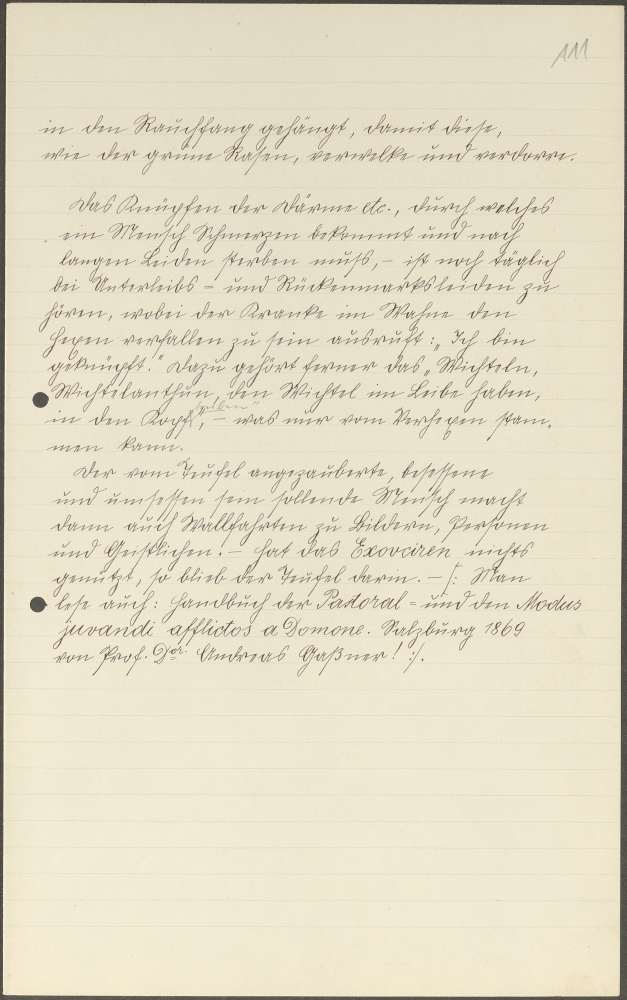 111
in den Rauchfang gehängt, damit diese,
wie der grüne Rasen, verwelke und verdorre.
Das Knüpfen der Därme etc., durch welches
ein Mensch Schmerzen bekommt und nach
langen Leiden sterben muß, – ist noch täglich
bei Unterleibs- und Rückenmarksleiden zu
hören, wobei der Kranke im Wahne den
Hexen verfallen zu sein ausruft: „Ich bin
geknüpft." Dazu gehört ferner das „Wichteln,
Wichtelanthun, den Wichtel im Leibe haben,
in den Kopf, – was nur vom Verhexen stam-
men kann.
Der vom Teufel angezauberte, besessene
und umsessen sein sollende Mensch macht
dann auch Wallfahrten zu Bildern, Personen
und Geistlichen. – Hat das Exorciren nichts
genützt, so blieb der Teufel darin. – /: Man
lese auch: Handbuch der Pastoral- und den Modus
juvandi afflictos a Domone. Salzburg 1869
von Prof. Dor. Andreas Gaßner! :/.